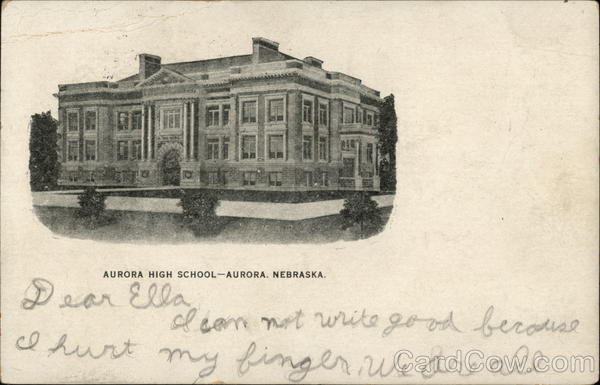 AURORA HIGH SCHOOL—AURORA. NEBRASKA.
Dear Ella
I can not write good because
I hurt my finger, We are all
CardCow.com